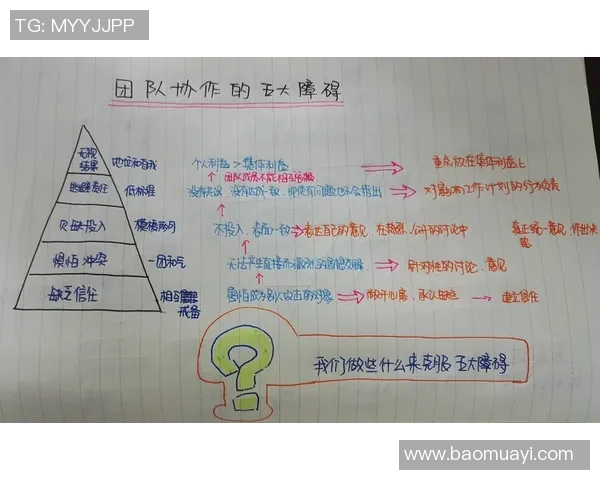 TG: MYYJJPP
团队协作的五大障碍
无视结果 地位和自我 个人利益 > 集体利益 重点放在集体利益上
团队成员不能相互
逃避责任 低标准 没有共识、没有达成一致,即使有问题也不会指出 对影响工作计划的行为负责
欠缺投入 模棱两可 不投入、表面一致 表达自己的意见,在热烈、公开的讨论中 真正统一意见,作出决策
惧怕冲突 一团和气 无法产生直接而激烈的思想交锋 针对性的讨论、意见
缺乏信任 相互戒备 害怕成为别人攻击的对象 敞开心扉,承认缺点 建立信任
我们做些什么来克服五大障碍
www.baomuayi.com